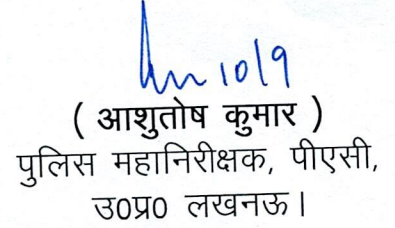 10/9
( आशुतोष कुमार )
पुलिस महानिरीक्षक, पीएसी,
उ0प्र0 लखनऊ।